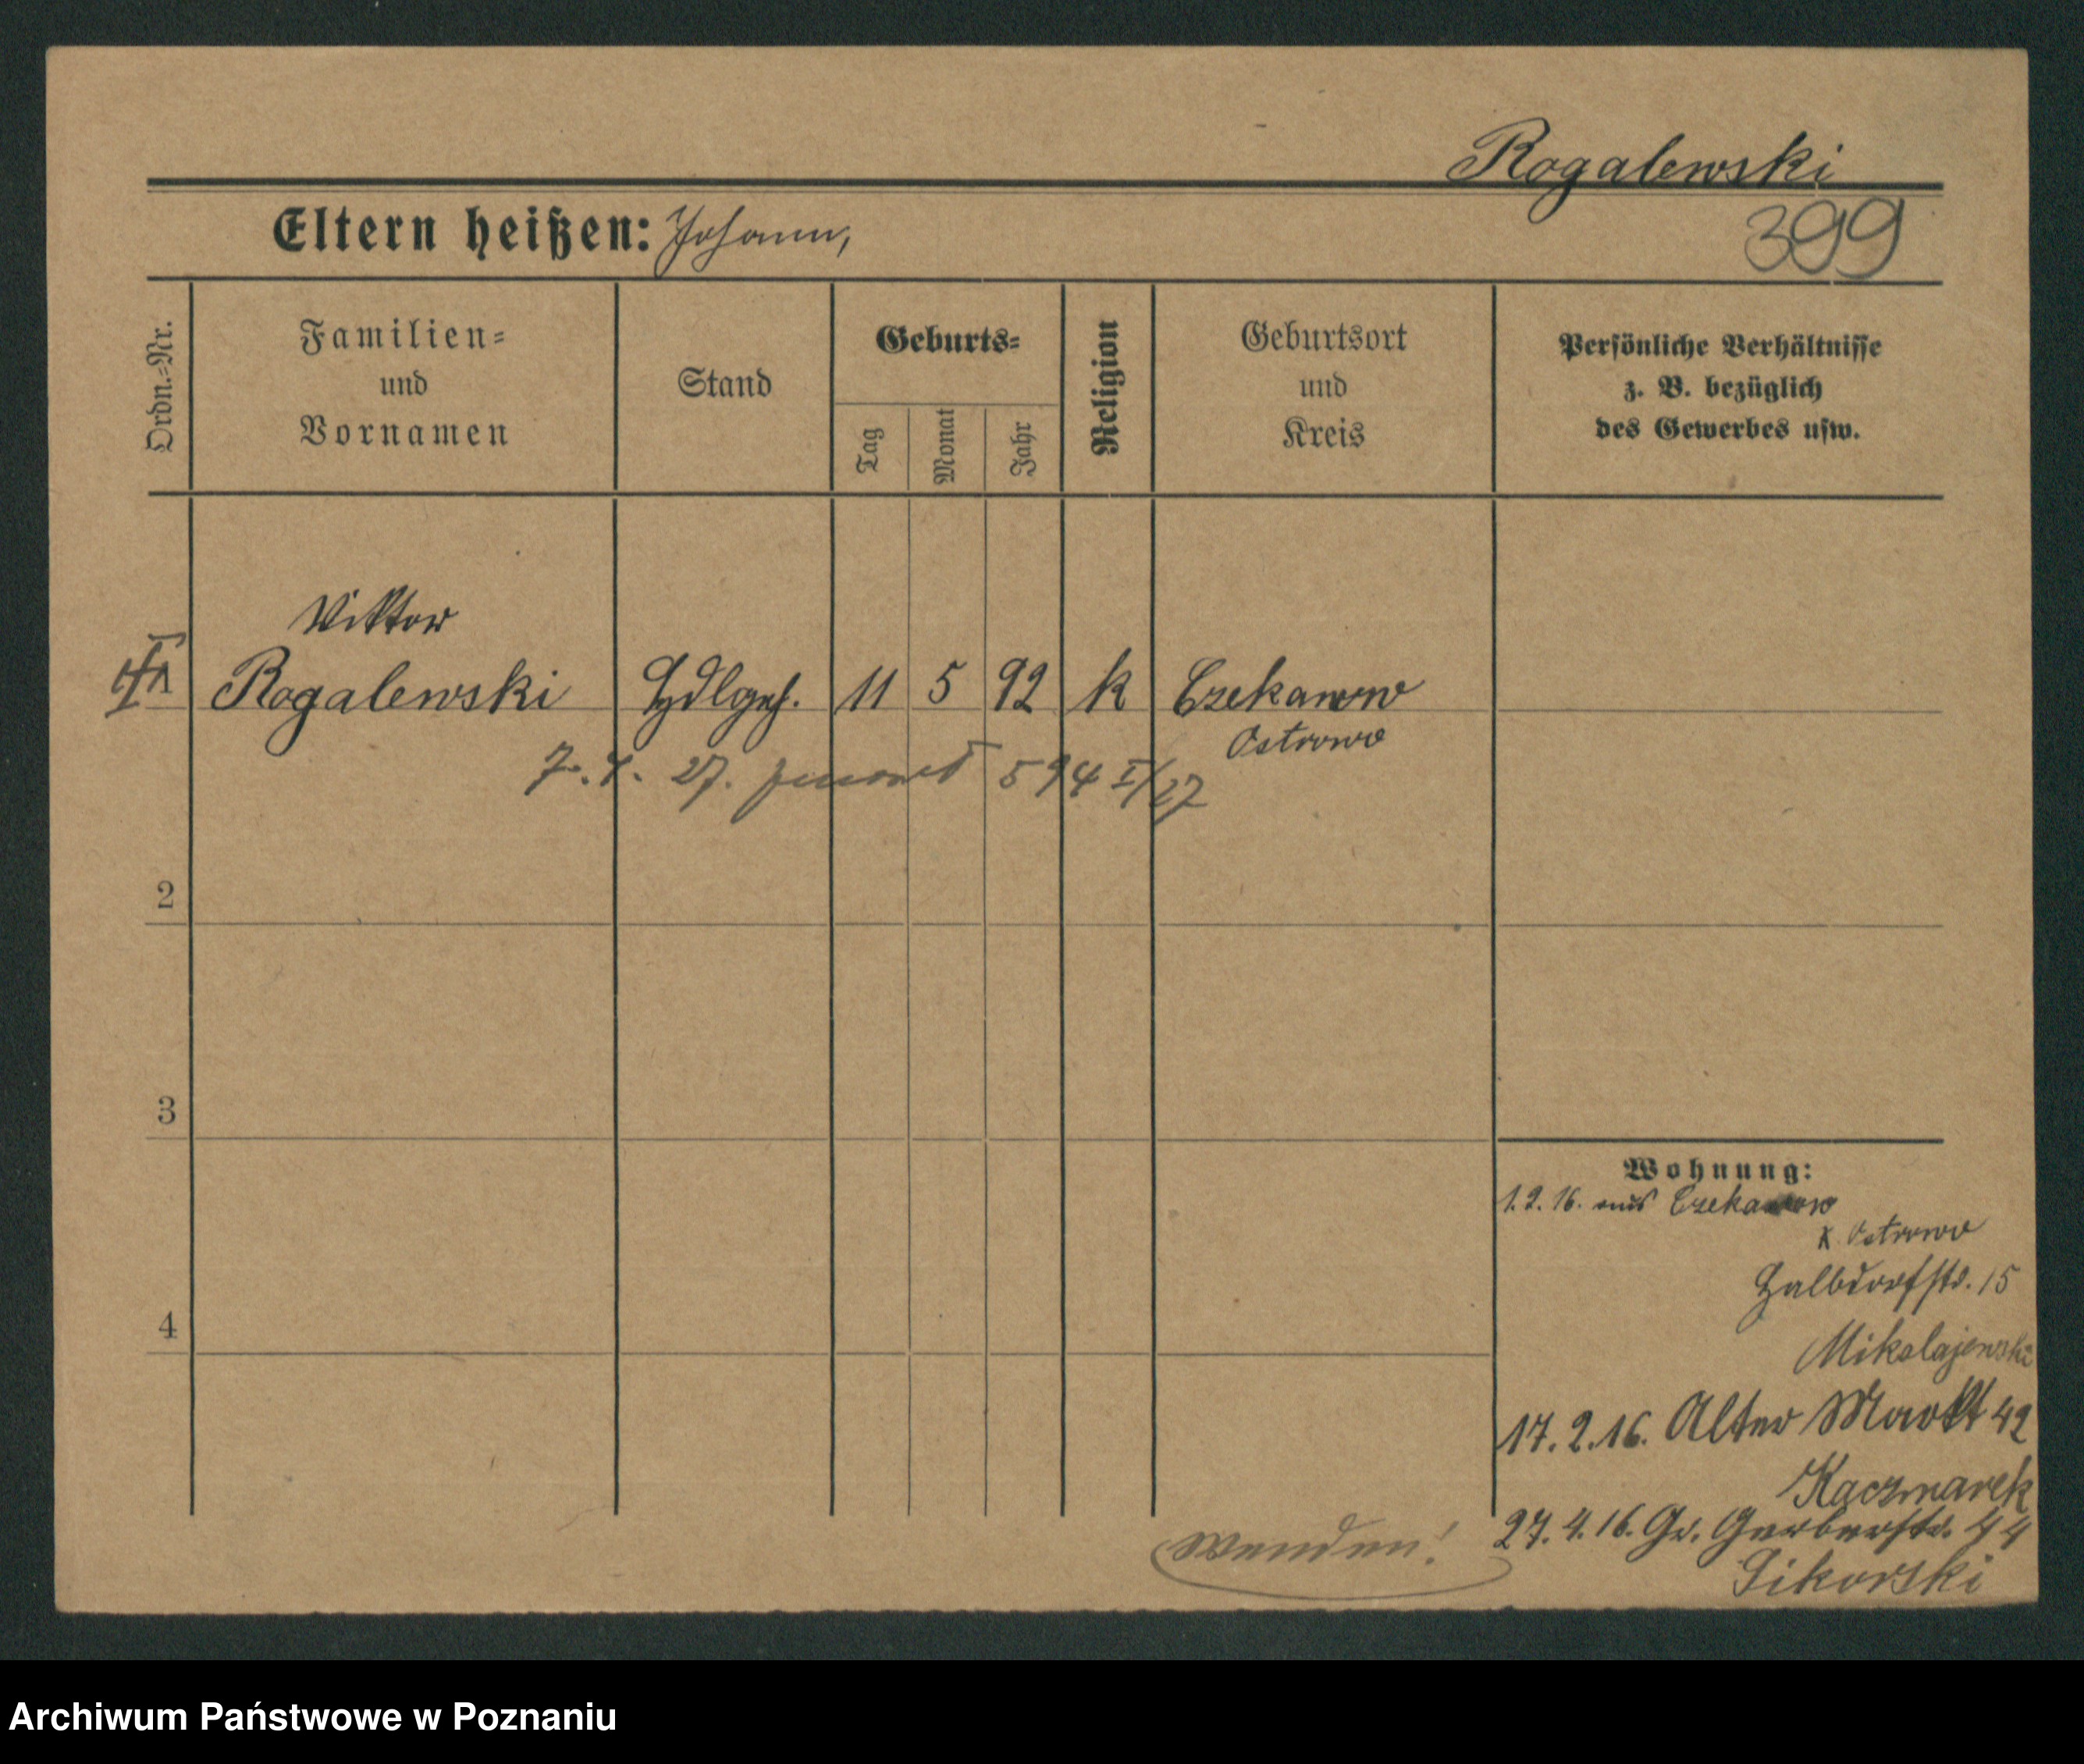 Rogalewski
Eltern heißen: Johann,
399
Ordn.-Nr.
Familien-
und
Vornamen
Stand
Geburts-
Tag
Monat
Jahr
Religion
Geburtsort
und
Kreis
Persönliche Verhältnisse
z. B. bezüglich
des Gewerbes usw.
Viktor
Rogalewski Hdlgeh. 11 5 92 k Czekanow
Ostrowo
27. 594 I/27
2
3
4
Wohnung:
1.2.16. aus Czekanow
K. Ostrowo
Halbdorfstr. 15
Mikolajewski
17.2.16. Alter Markt 42
Kaczmarek
27.4.16. Gr. Gerberstr. 44
Sikorski
Wenden!
Archiwum Państwowe w Poznaniu